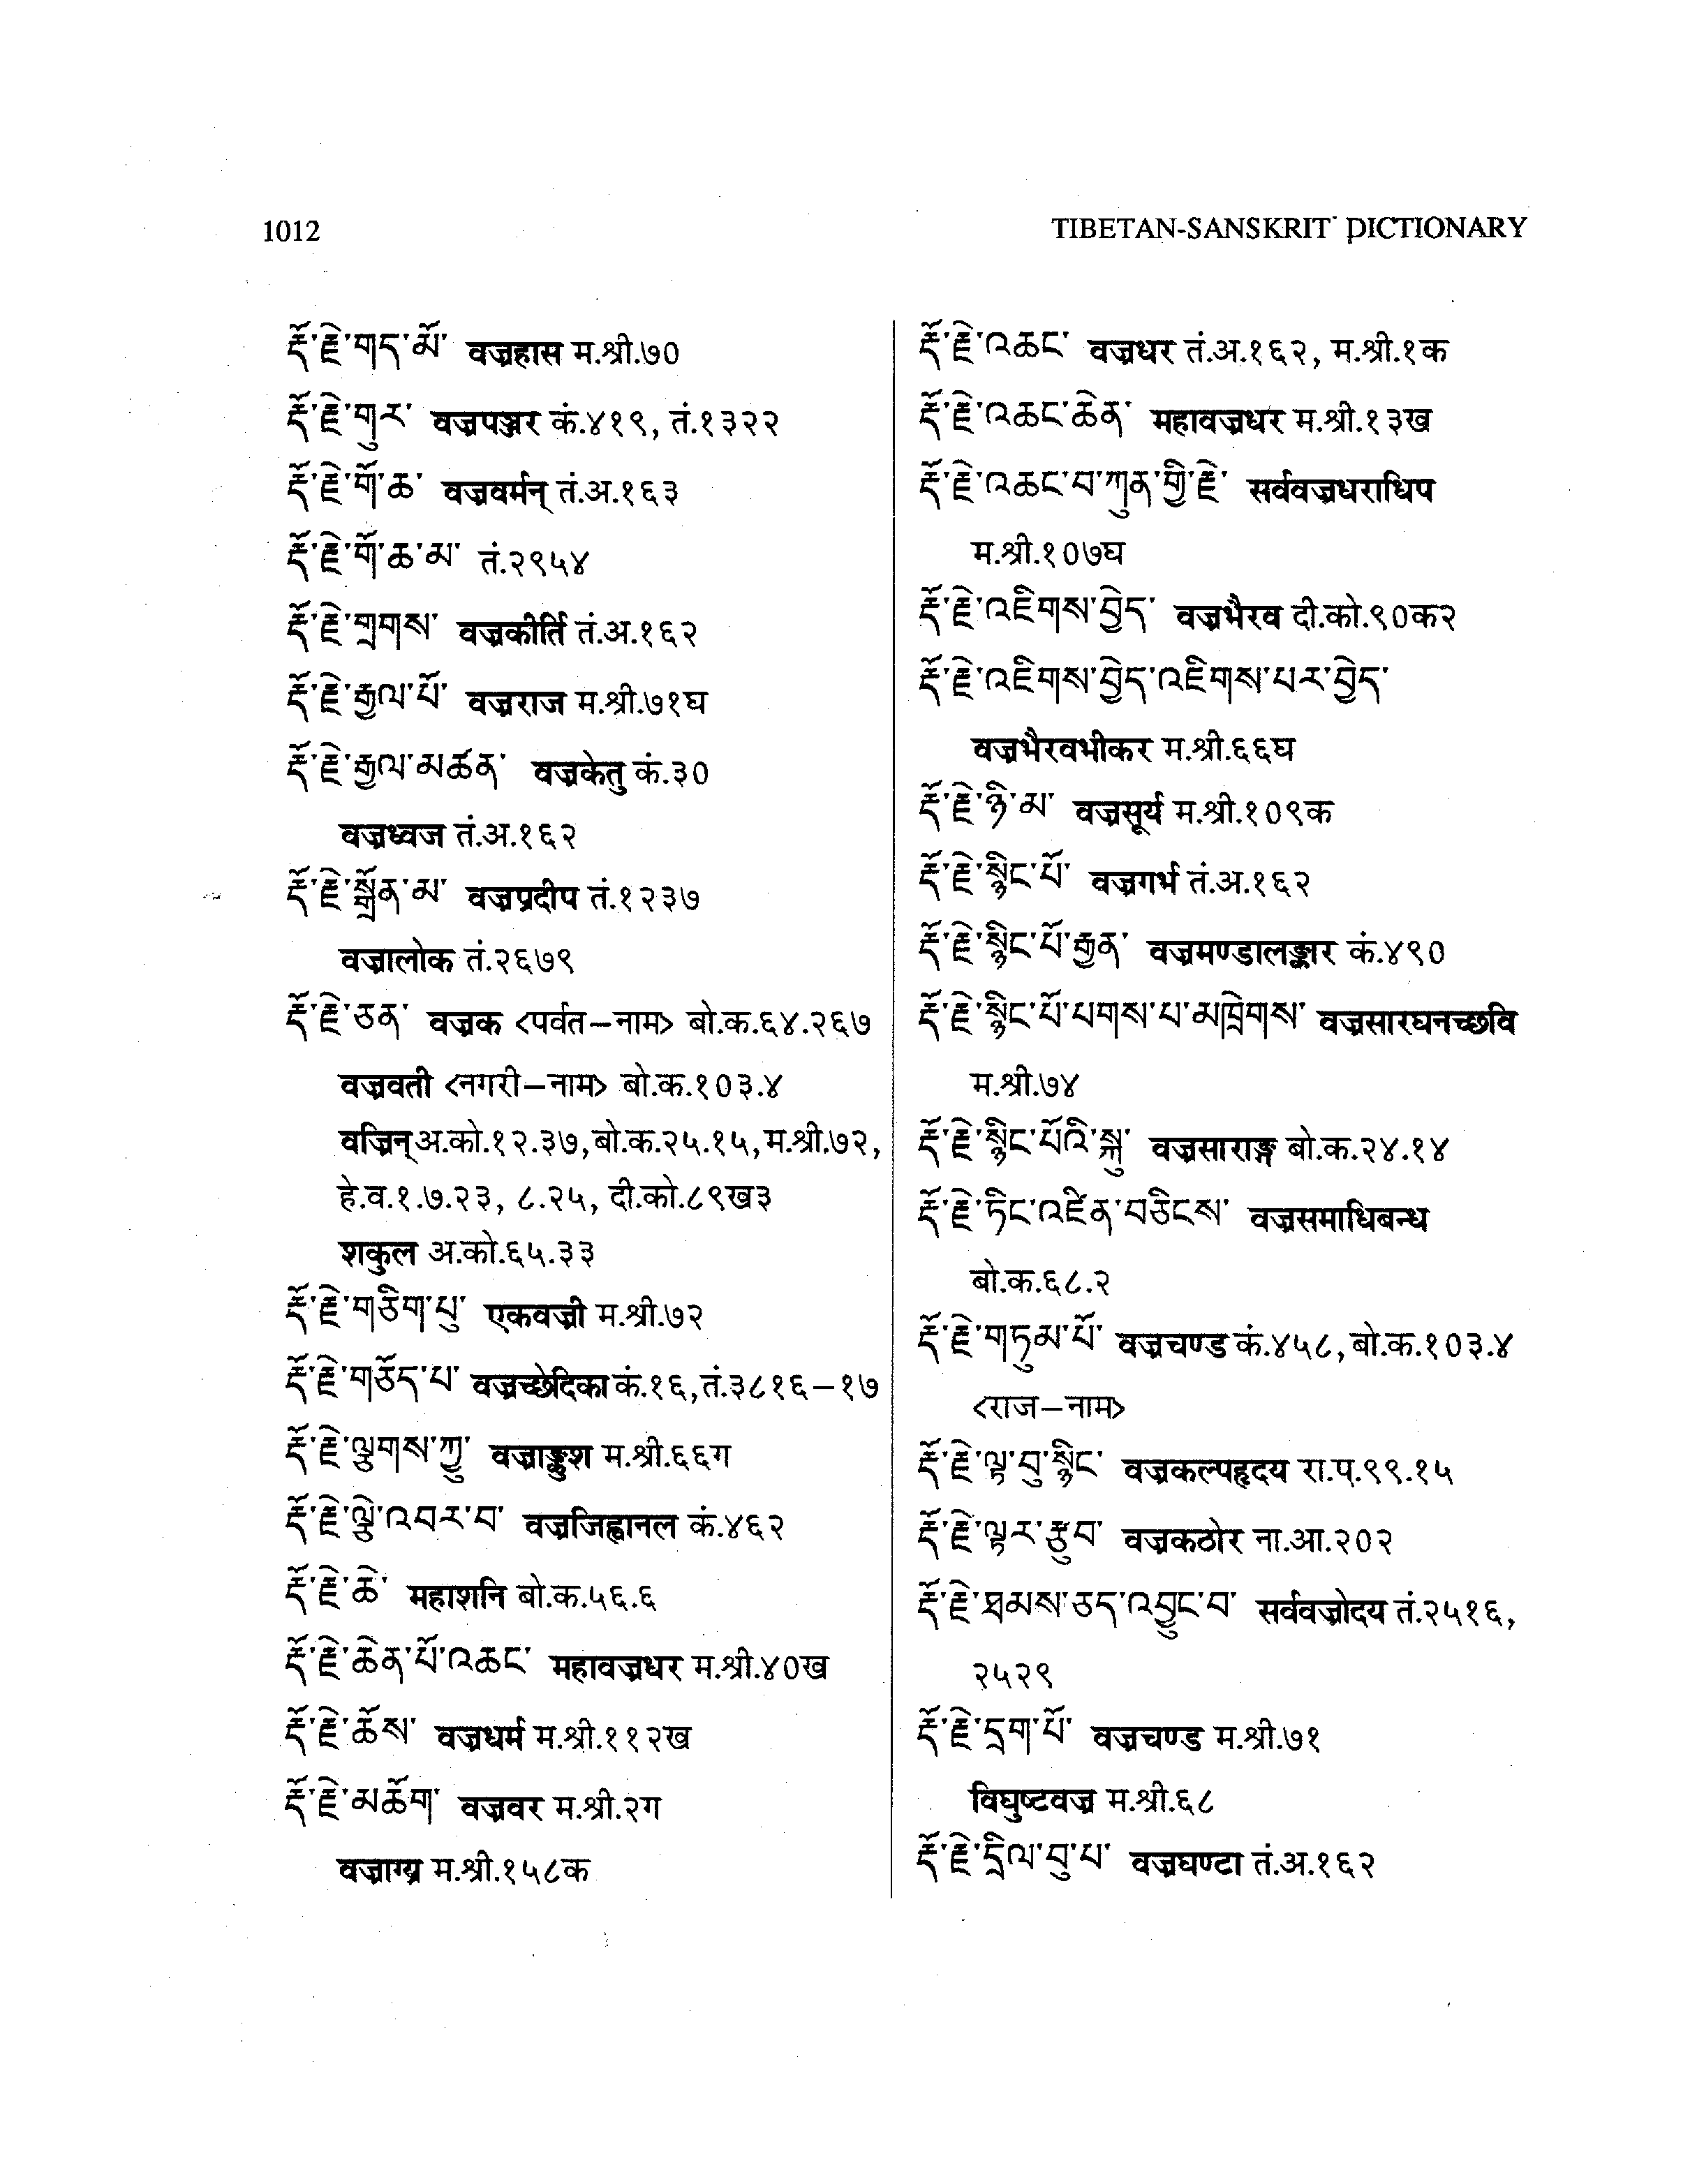 1012
TIBETAN-SANSKRIT DICTIONARY
རྡོ་རྗེ་གད་མོ་ वज्रहास म.श्री.७०
རྡོ་རྗེ་གུར་ वज्रपञ्जर कं.४१९, तं.१३२२
རྡོ་རྗེ་གོ་ཆ་ वज्रवर्मन् तं.अ.१६३
རྡོ་རྗེ་གོ་ཆ་མ་ तं.२९५४
རྡོ་རྗེ་གྲགས་ वज्रकीर्ति तं.अ.१६२
རྡོ་རྗེ་རྒྱལ་པོ་ वज्रराज म.श्री.७१घ
རྡོ་རྗེ་རྒྱལ་མཚན་ वज्रकेतु कं.३०
वज्रध्वज तं.अ.१६२
རྡོ་རྗེ་སྒྲོན་མ་ वज्रप्रदीप तं.१२३७
वज्रालोक तं.२६७९
རྡོ་རྗེ་ཅན་ वज्रक <पर्वत–नाम> बो.क.६४.२६७
वज्रवती <नगरी–नाम> बो.क.१०३.४
वज्रिन् अ.को.१२.३७, बो.क.२५.१५, म.श्री.७२,
हे.व.१.७.२३, ८.२५, दी.को.८९ख३
शकुल अ.को.६५.३३
རྡོ་རྗེ་གཅིག་པུ་ एकवज्री म.श्री.७२
རྡོ་རྗེ་གཅོད་པ་ वज्रच्छेदिका कं.१६, तं.३८१६–१७
རྡོ་རྗེ་ལྕགས་ཀྱུ་ वज्राङ्कुश म.श्री.६६ग
རྡོ་རྗེ་ལྕེ་འབར་བ་ वज्रजिह्वानल कं.४६२
རྡོ་རྗེ་ཆེ་ महाशनि बो.क.५६.६
རྡོ་རྗེ་ཆེན་པོ་འཆང་ महावज्रधर म.श्री.४०ख
རྡོ་རྗེ་ཆོས་ वज्रधर्म म.श्री.११२ख
རྡོ་རྗེ་མཆོག་ वज्रवर म.श्री.२ग
वज्राग्य्र म.श्री.१५८क
རྡོ་རྗེ་འཆང་ वज्रधर तं.अ.१६२, म.श्री.१क
རྡོ་རྗེ་འཆང་ཆེན་ महावज्रधर म.श्री.१३ख
རྡོ་རྗེ་འཆང་བ་ཀུན་གྱི་རྗེ་ सर्ववज्रधराधिप
म.श्री.१०७घ
རྡོ་རྗེ་འཇིགས་བྱེད་ वज्रभैरव दी.को.९०क२
རྡོ་རྗེ་འཇིགས་བྱེད་འཇིགས་པར་བྱེད་
वज्रभैरवभीकर म.श्री.६६घ
རྡོ་རྗེ་ཉི་མ་ वज्रसूर्य म.श्री.१०९क
རྡོ་རྗེ་སྙིང་པོ་ वज्रगर्भ तं.अ.१६२
རྡོ་རྗེ་སྙིང་པོ་རྒྱན་ वज्रमण्डालङ्कार कं.४९०
རྡོ་རྗེ་སྙིང་པོ་པགས་པ་མཁྲེགས་ वज्रसारघनच्छवि
म.श्री.७४
རྡོ་རྗེ་སྙིང་པོའི་སྐུ་ वज्रसाराङ्ग बो.क.२४.१४
རྡོ་རྗེ་ཏིང་འཛིན་བཅིངས་ वज्रसमाधिबन्ध
बो.क.६८.२
རྡོ་རྗེ་གཏུམ་པོ་ वज्रचण्ड कं.४५८, बो.क.१०३.४
<राज–नाम>
རྡོ་རྗེ་ལྟ་བུ་སྙིང་ वज्रकल्पहृदय रा.प.९९.१५
རྡོ་རྗེ་ལྟར་རྩུབ་ वज्रकठोर ना.आ.२०२
རྡོ་རྗེ་ཐམས་ཅད་འབྱུང་བ་ सर्ववज्रोदय तं.२५१६,
२५२९
རྡོ་རྗེ་དྲག་པོ་ वज्रचण्ड म.श्री.७१
विघुष्टवज्र म.श्री.६८
རྡོ་རྗེ་དྲིལ་བུ་པ་ वज्रघण्टा तं.अ.१६२